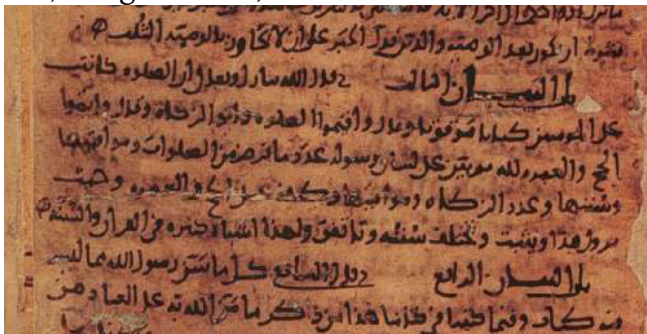 بعد الوصيه والدين فدل الخبر على ان لا يجاوز بالوصيه الثلث
باب البيان الثالث قال الله تبارك وتعالى ان الصلوه كانت
على المومنين كتابا موقوتا وقال واقيموا الصلوه واتوا الزكاه وقال واتموا
الحج والعمره لله ثم بين على لسان رسوله عدد ما فرض من الصلوات ومواقيتها
وسننها وعدد الزكاه ومواقيتها وكيف عمل الحج والعمره وحيث
يزول هذا ويثبت وتختلف سننه وتاتفق ولهذا اشباه كثيره في القران والسنه
باب البيان الرابع قال الشافعي كل ما سن رسول الله مما ليس
فيه كتاب وفيما كتبنا في كتابنا هذا من ذكر ما من الله به على العباد من